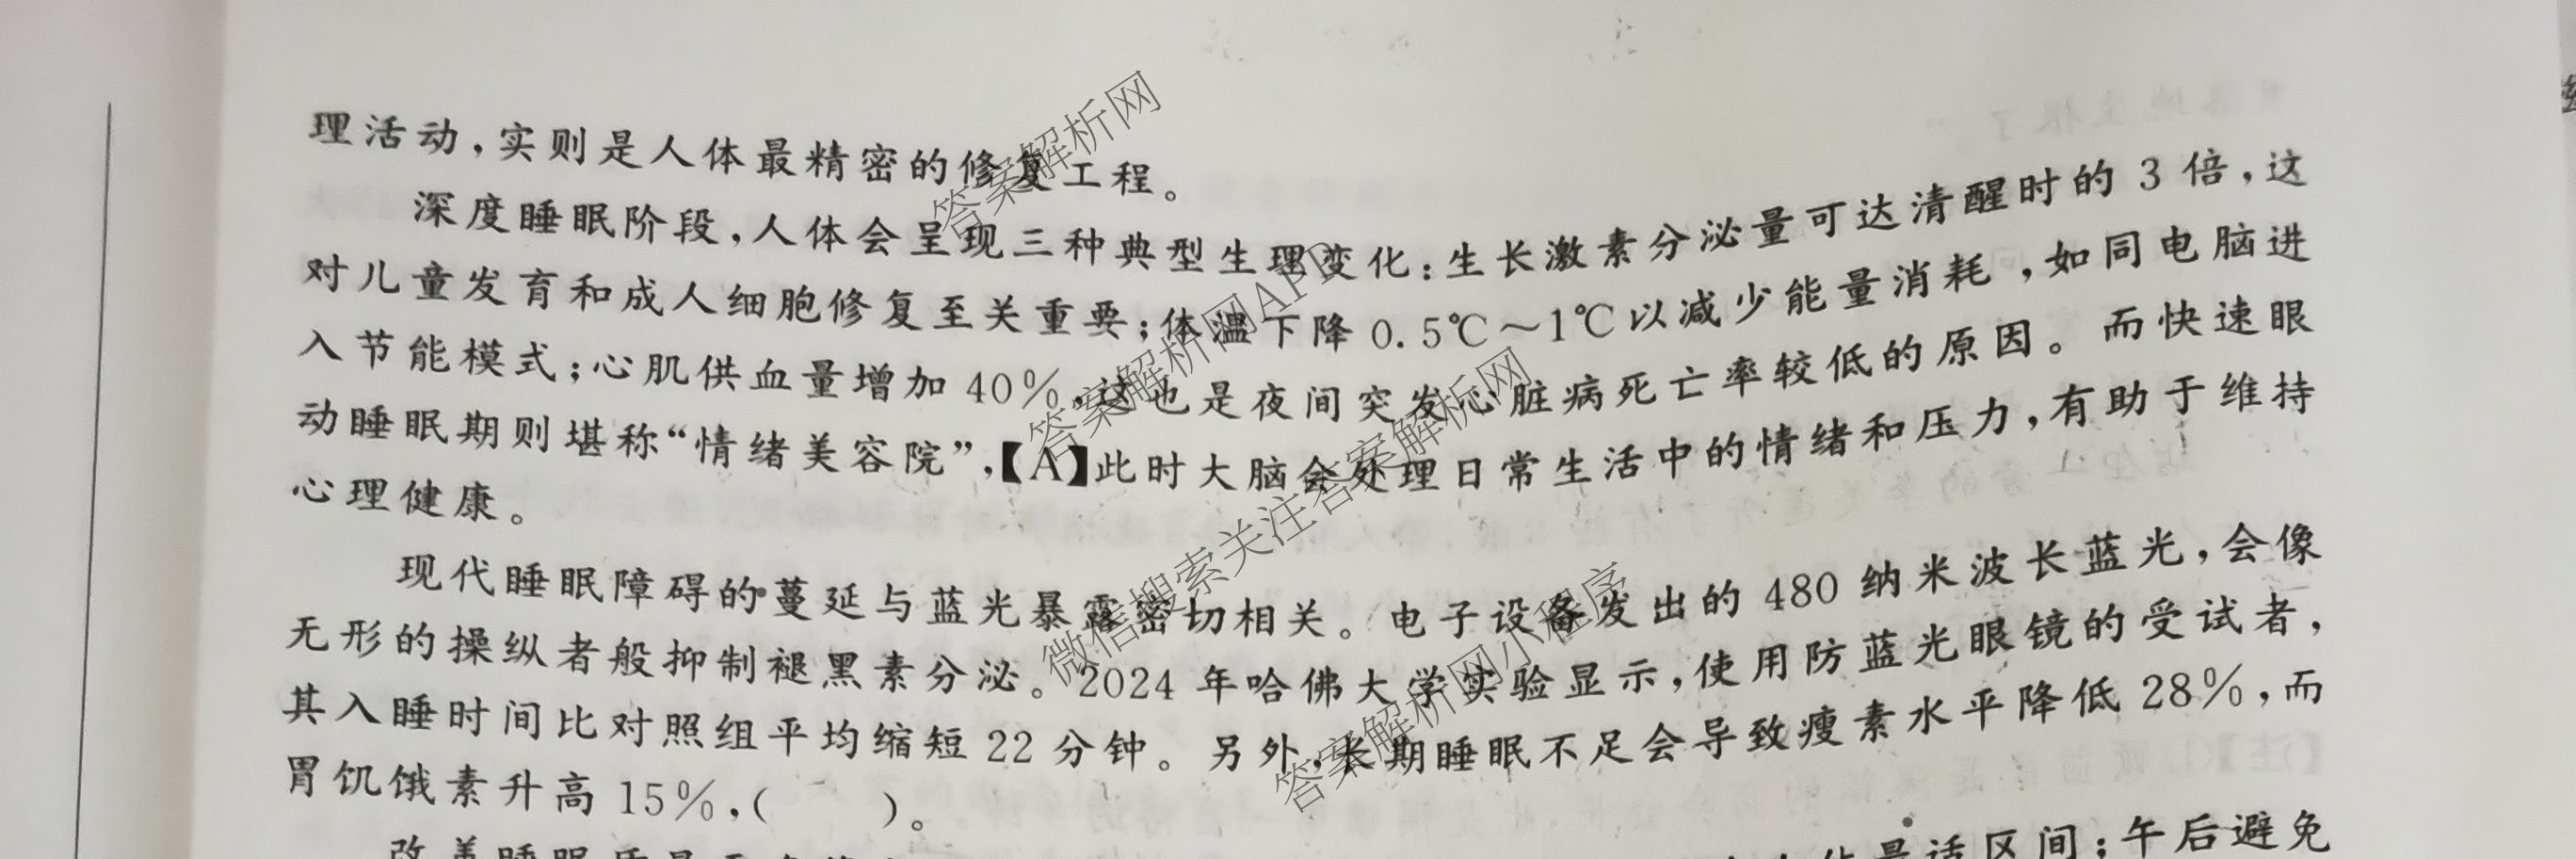 理活动，实则是人体最精密的修复工程。
深度睡眠阶段，人体会呈现三种典型生理变化：生长激素分泌量可达清醒时的 3 倍，这
对儿童发育和成人细胞修复至关重要；体温下降 0.5℃～1℃以减少能量消耗，如同电脑进
入节能模式；心肌供血量增加 40%，这也是夜间突发心脏病死亡率较低的原因。而快速眼
动睡眠期则堪称“情绪美容院”，【A】此时大脑会处理日常生活中的情绪和压力，有助于维持
心理健康。
现代睡眠障碍的蔓延与蓝光暴露密切相关。电子设备发出的 480 纳米波长蓝光，会像
无形的操纵者般抑制褪黑素分泌。2024 年哈佛大学实验显示，使用防蓝光眼镜的受试者，
其入睡时间比对照组平均缩短 22 分钟。另外，长期睡眠不足会导致瘦素水平降低 28%，而
胃饥饿素升高 15%，（　　）。
改善睡眠质量
最适区间；午后避免
答案解析网
答案解析网APP
微信搜索关注答案解析网
答案解析网小程序